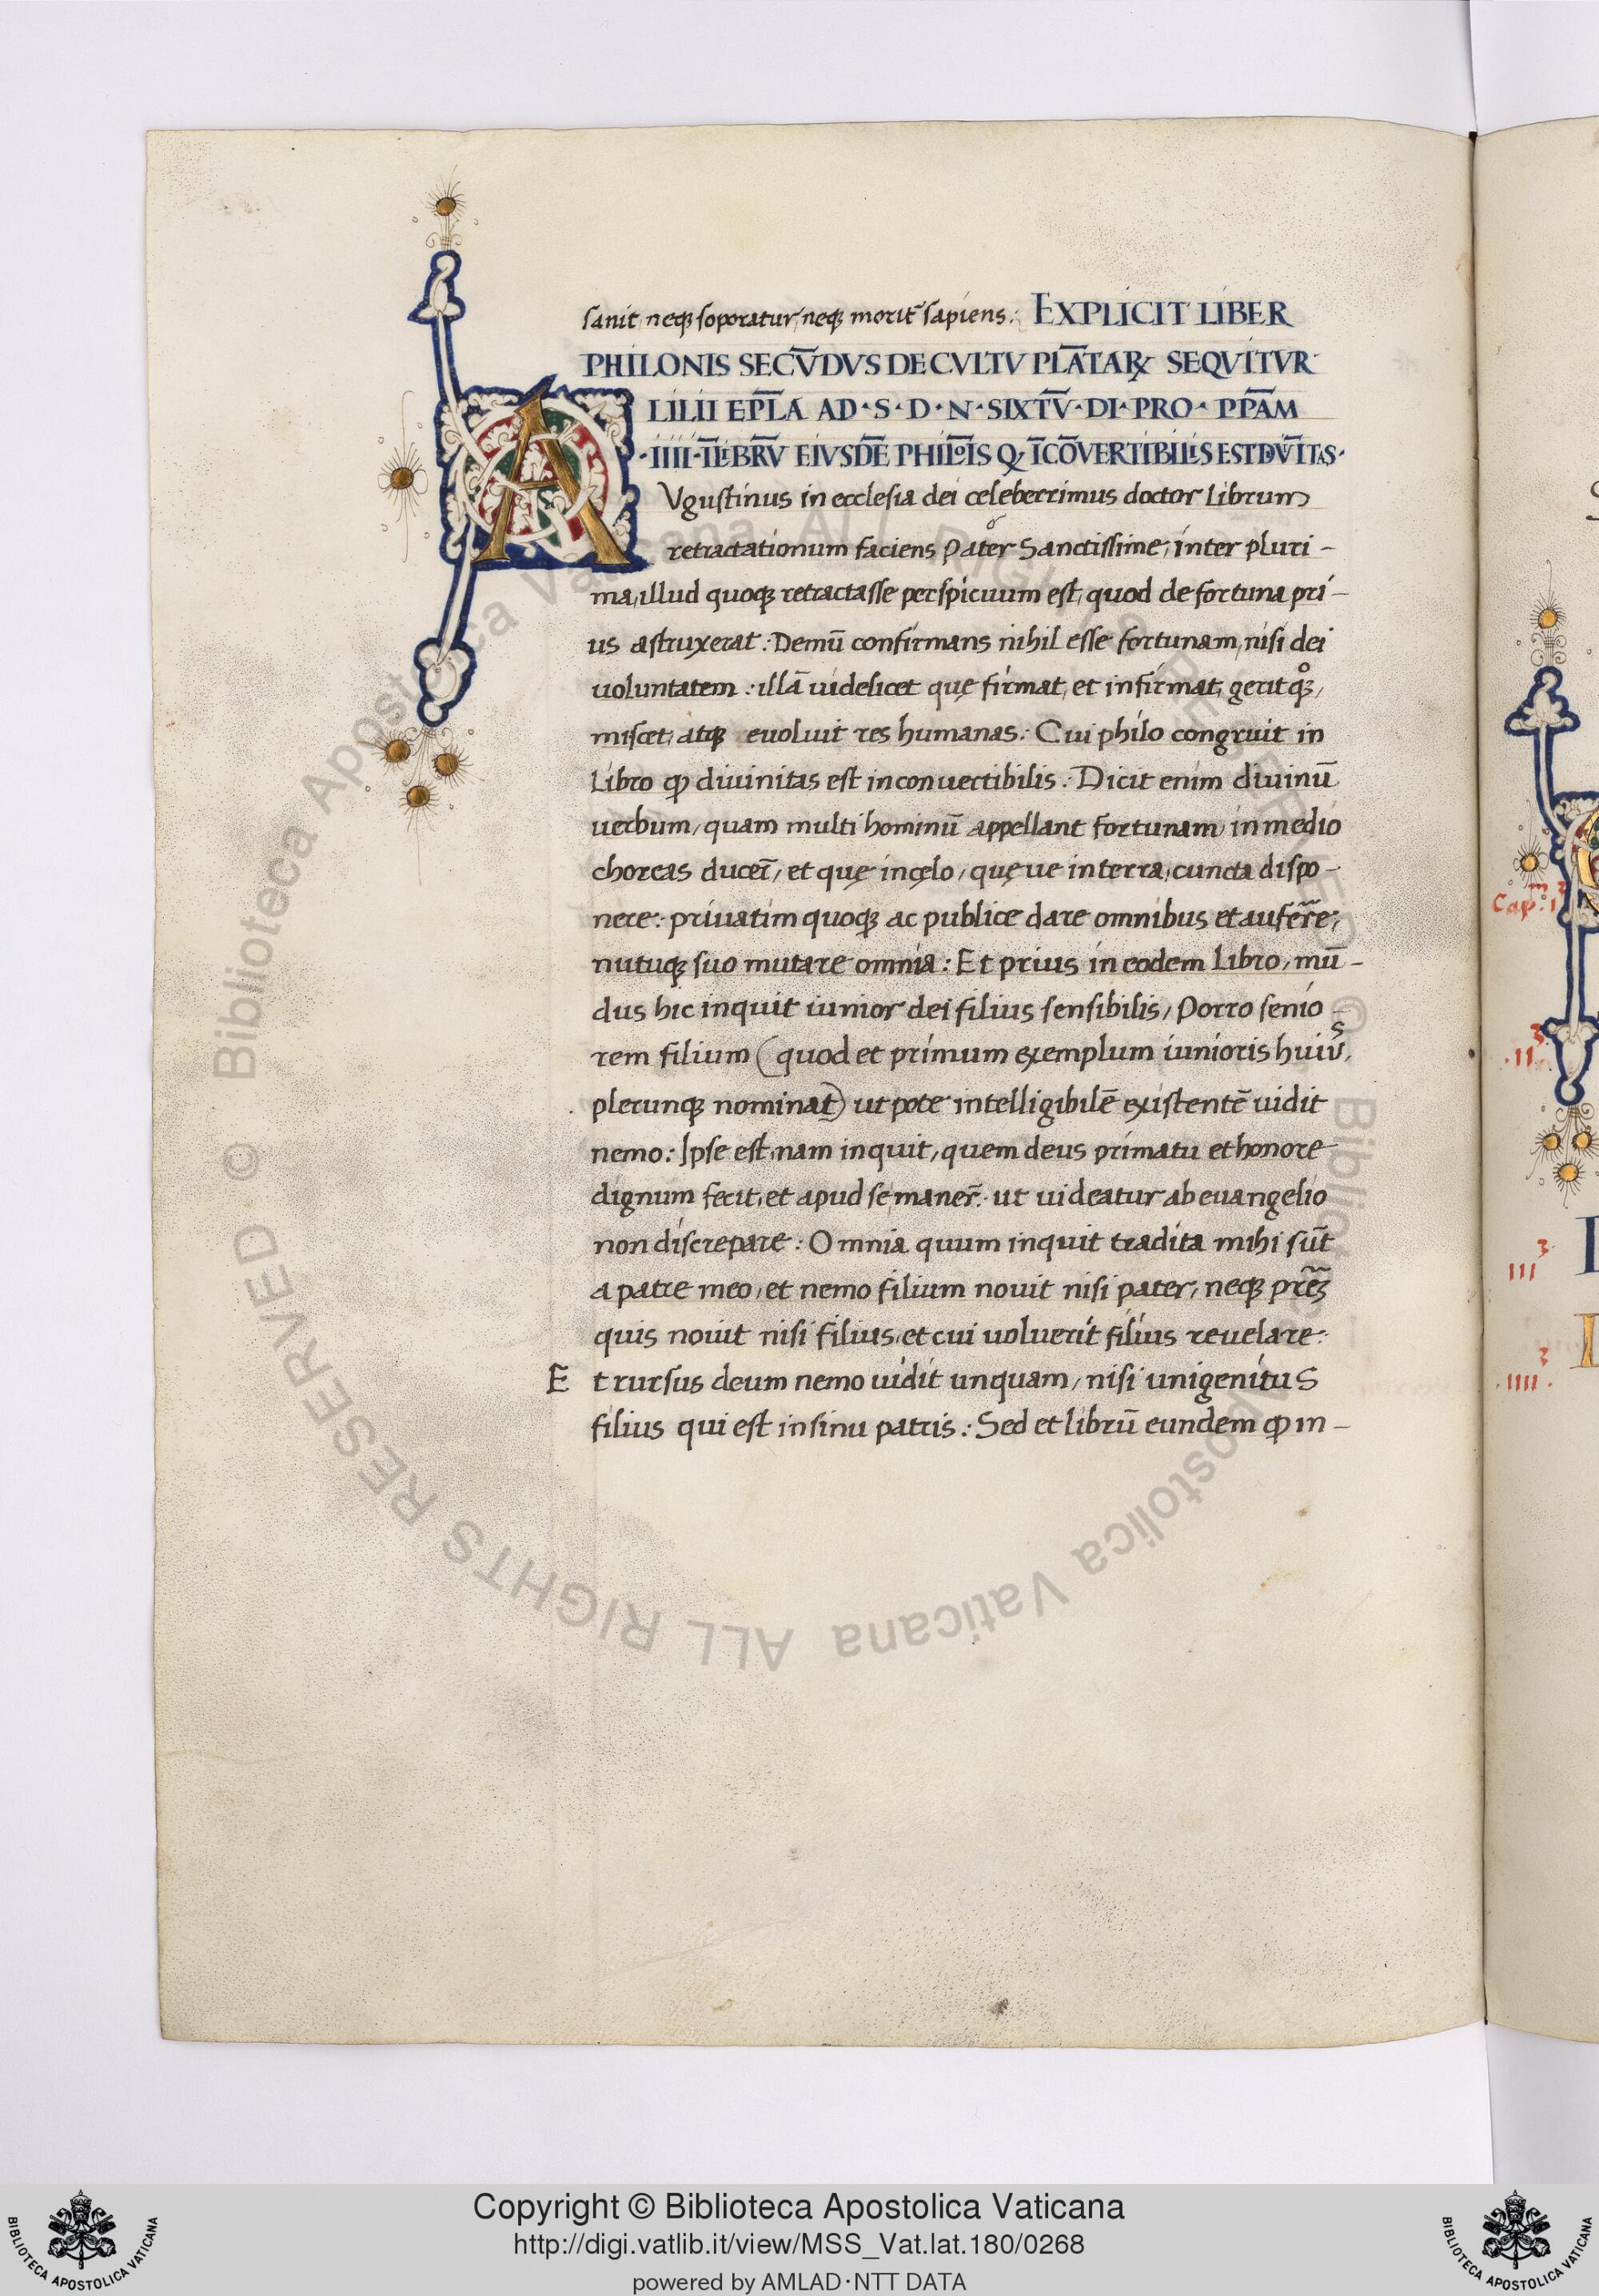 sanit, neqꝫ soporatur, neqꝫ morit̄ sapiens: EXPLICIT LIBER
PHILONIS SECV̄DVS DE CVLTV PLĀTAꝜ SEQVITVR
LILII EPL̄A AD·S·D·N·SIXTV̄·DI·PRO·PPĀM
·IIII·ĪLIBRV̄ EIVSDĒ PHILOĪS Q, ĪCŌVERTIBILIS EST DIVĪTAS·
AVgustinus in ecclesia dei celeberrimus doctor Librum
retractationum faciens Pater Sanctissime, inter pluri-
ma, illud quoqꝫ retractasse perspicuum est, quod de fortuna pri-
us astruxerat: Demū confirmans nihil esse fortunam, nisi dei
uoluntatem: illā uidelicet quę firmat, et infirmat, gerit qꝫ,
miscet, atqꝫ euoluit res humanas: Cui philo congruit in
Libro ꝙ diuinitas est inconuertibilis: Dicit enim diuinū
uerbum, quam multi hominū appellant fortunam, in medio
choreas ducer̄, et quę in cęlo, quęue in terra, cuncta dispo-
nere: priuatim quoqꝫ ac publice dare omnibus et auferr̄e,
nutuqꝫ suo mutare omnia: Et prius in eodem Libro, mū-
dus hic inquit iunior dei filius sensibilis, Porro senio-
rem filium (quod et primum exemplum iunioris huiꝰ,
plerunqꝫ nominat) utpote intelligibilē existentē uidit
nemo: Ipse est, nam inquit, quem deus primatu et honore
dignum fecit, et apud se maner̄: ut uideatur ab euangelio
non discrepare: Omnia quum inquit tradita mihi sūt
a patre meo, et nemo filium nouit nisi pater, neqꝫ pr̄eꝫ
quis nouit nisi filius, et cui uoluerit filius reuelare:
Et rursus deum nemo uidit unquam, nisi unigenitus
filius qui est in sinu patris: Sed et librū eundem ꝙ in-
Cap.m 1
.II.
III
.IIII.
© Biblioteca Apostolica Vaticana ALL RIGHTS RESERVED © Biblioteca Apostolica Vaticana ALL RIGHTS RESERVED
Copyright © Biblioteca Apostolica Vaticana
http://digi.vatlib.it/view/MSS_Vat.lat.180/0268
powered by AMLAD·NTT DATA
BIBLIOTECA APOSTOLICA VATICANA
BIBLIOTECA APOSTOLICA VATICANA